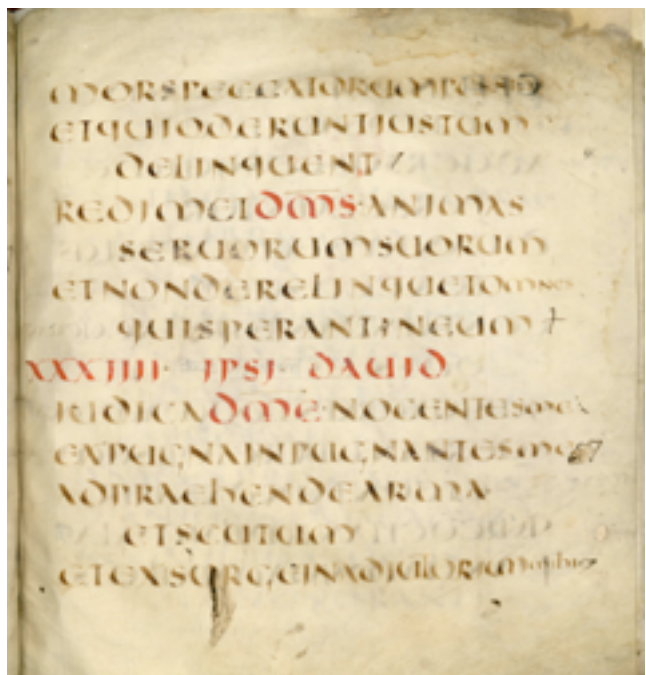 MORSPECCATORUMPESSI
ETQUIODERUNTIUSTUM
DELINQUENT
REDIMEIDMS·ANIMAS
SERUORUMSUORUM
ETNONDERELINQUETOMNES
QUISPERANTINEUM
XXXIIII· IPSI DAUID
IUDICADME·NOCENTESME
EXPUGNAINPUGNANTESME
ADPRAEHENDEARMA·
ETSCUTUM
ETEXSURGEINADIUTORIUM